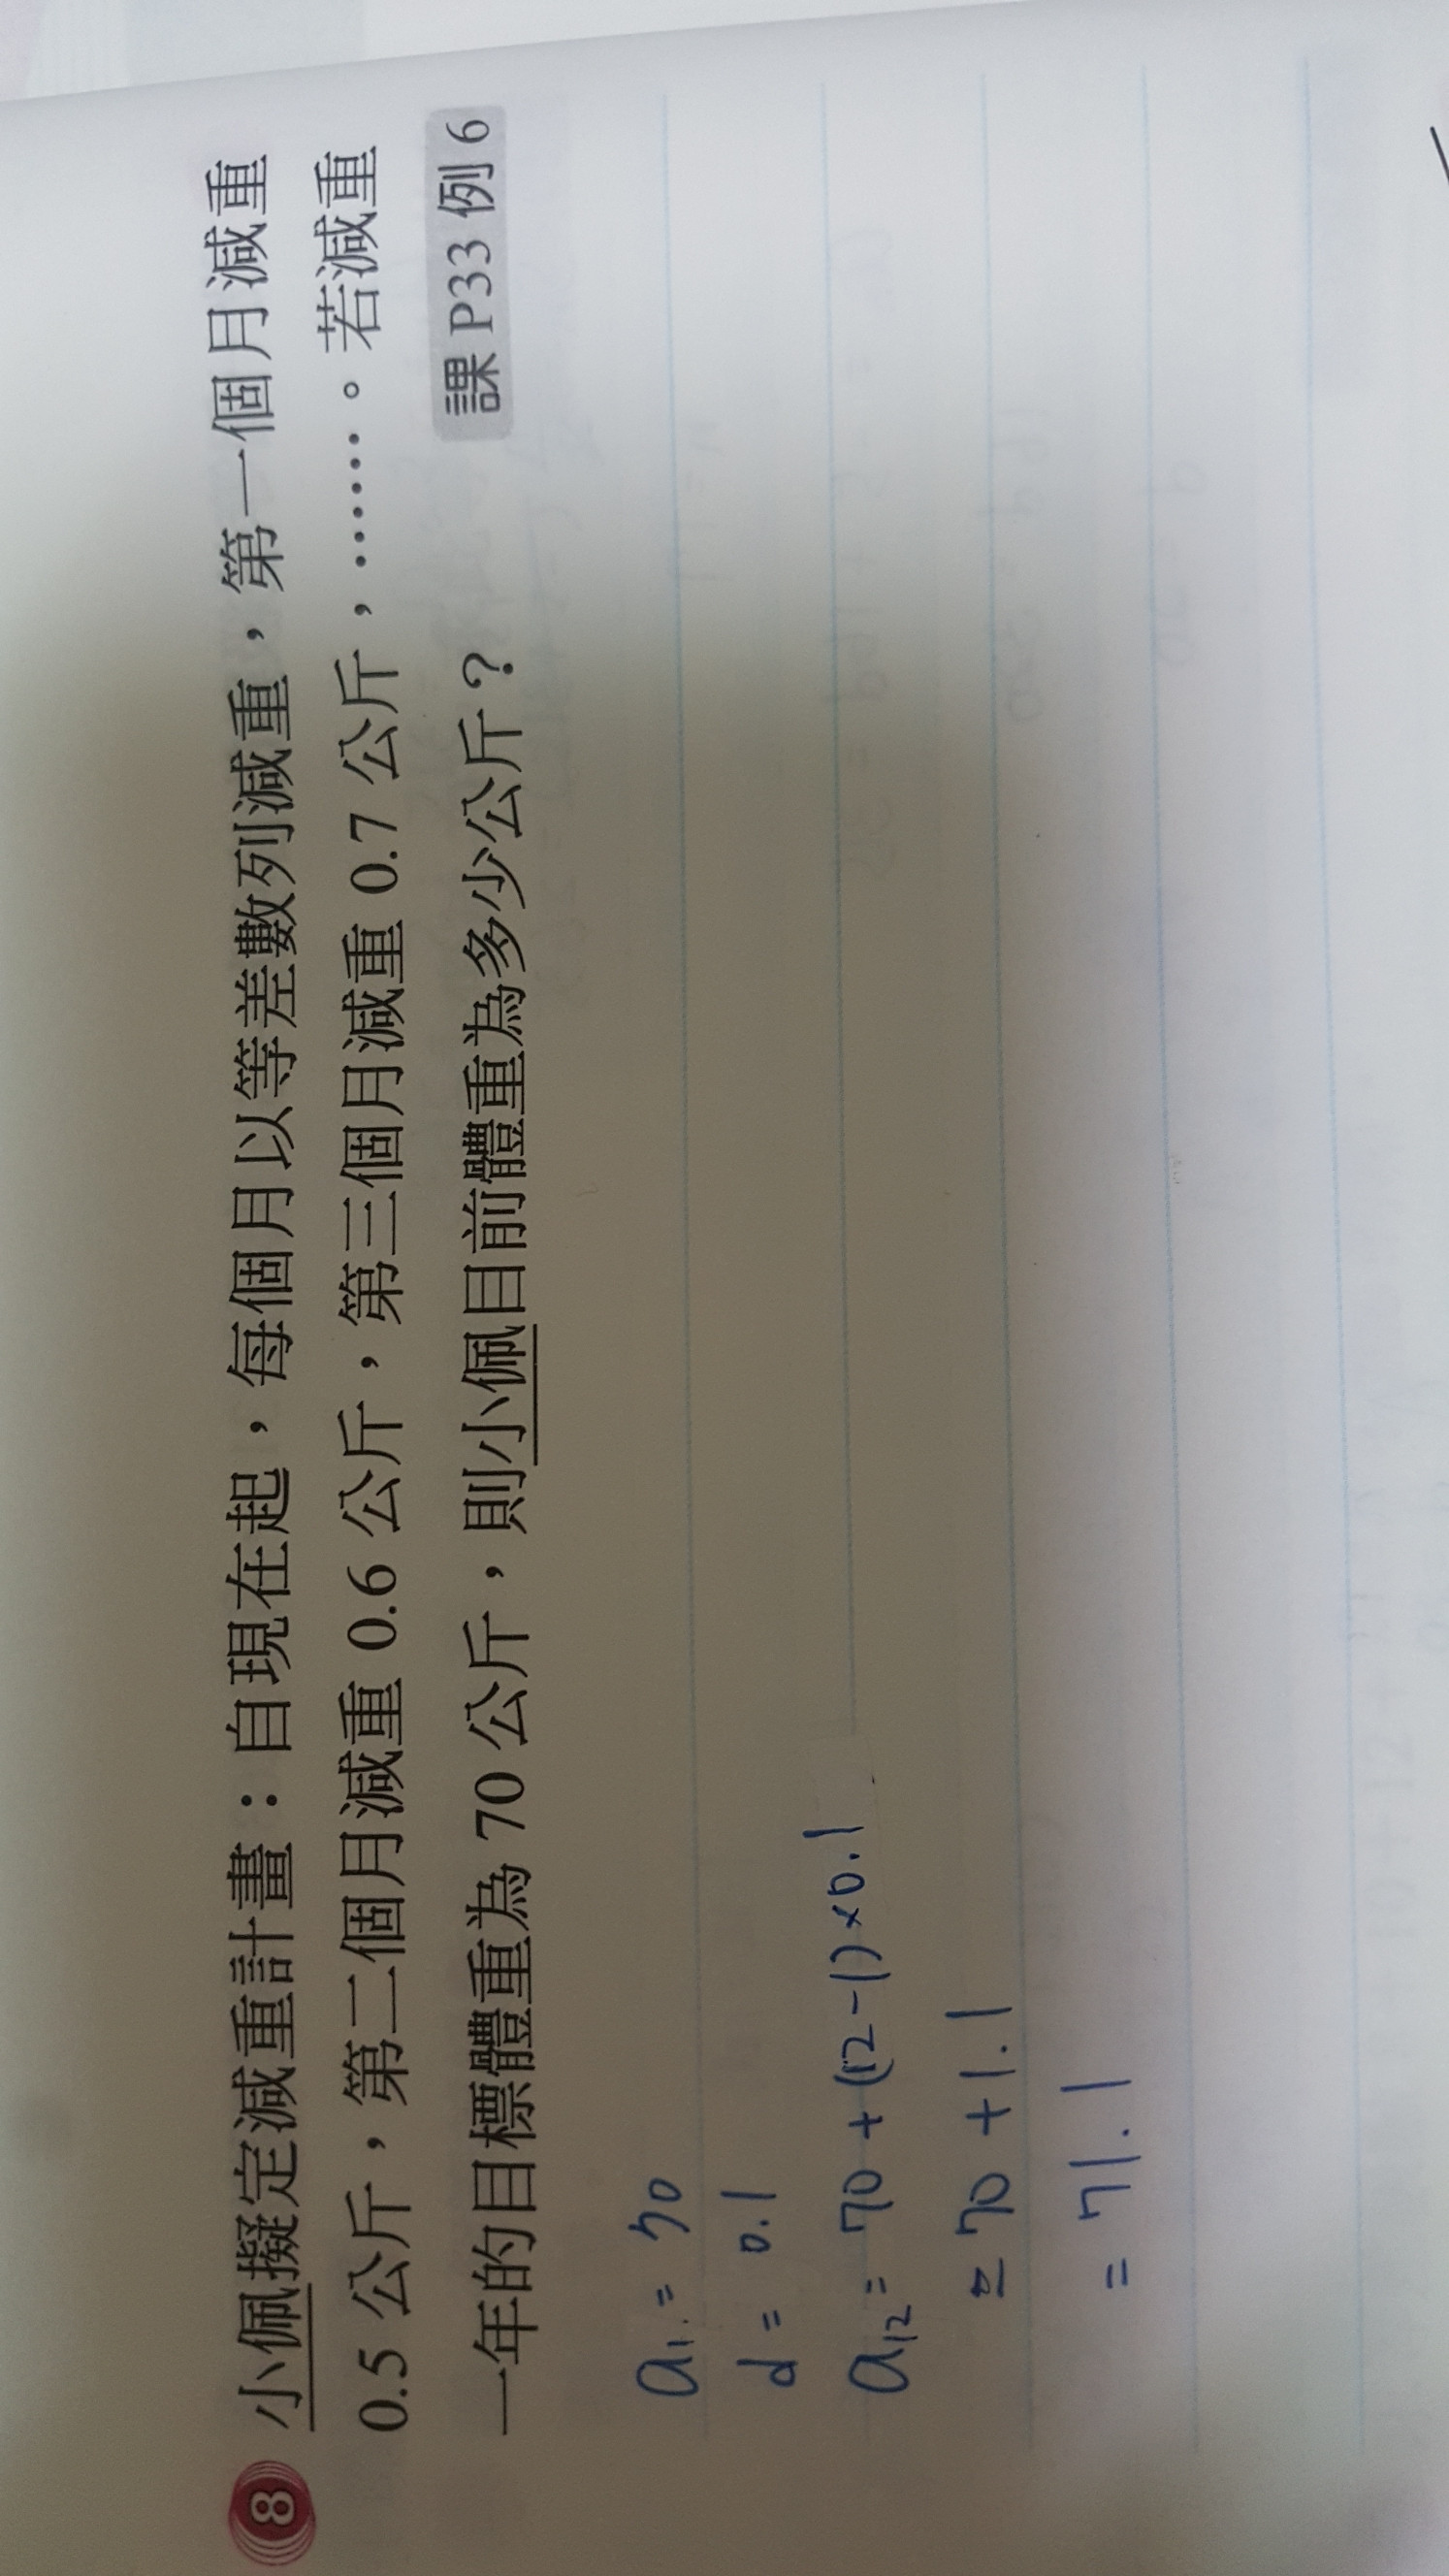 8 小佩擬定減重計畫：自現在起，每個月以等差數列減重，第一個月減重
0.5 公斤，第二個月減重 0.6 公斤，第三個月減重 0.7 公斤，……。若減重
一年的目標體重為 70 公斤，則小佩目前體重為多少公斤？
課 P33 例 6
a₁ = 70
d = 0.1
a₁₂ = 70 + (12-1)×0.1
= 70 + 1.1
= 71.1